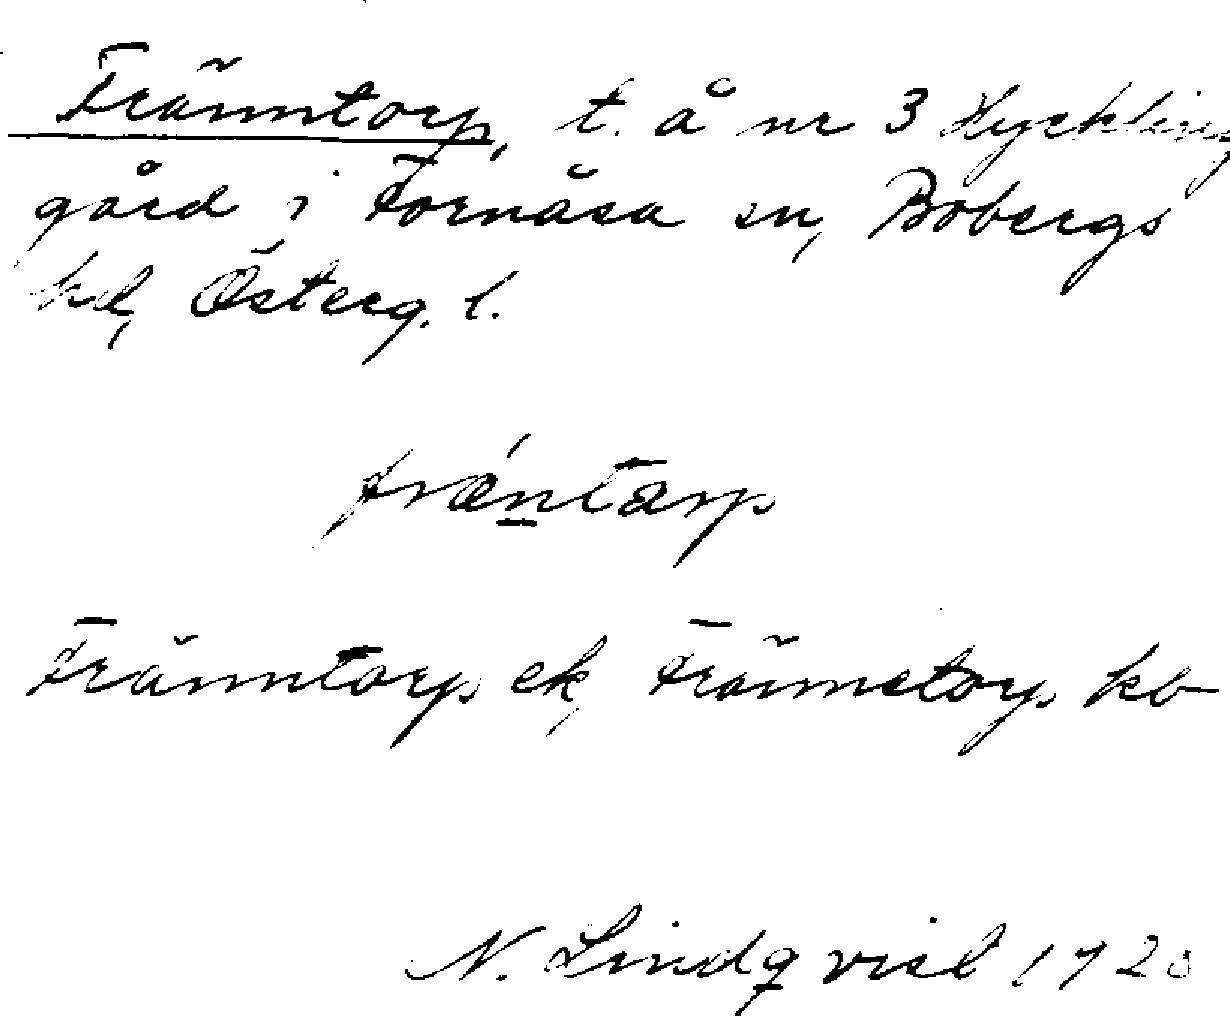 Fränntorp, t. å nr 3 Hyckling
gård i Fornåsa sn, Bobergs
hd, Österg. l.
frǽntarp
Fränntorp ek, Frännetorp kb
N. Lindqvist 1920